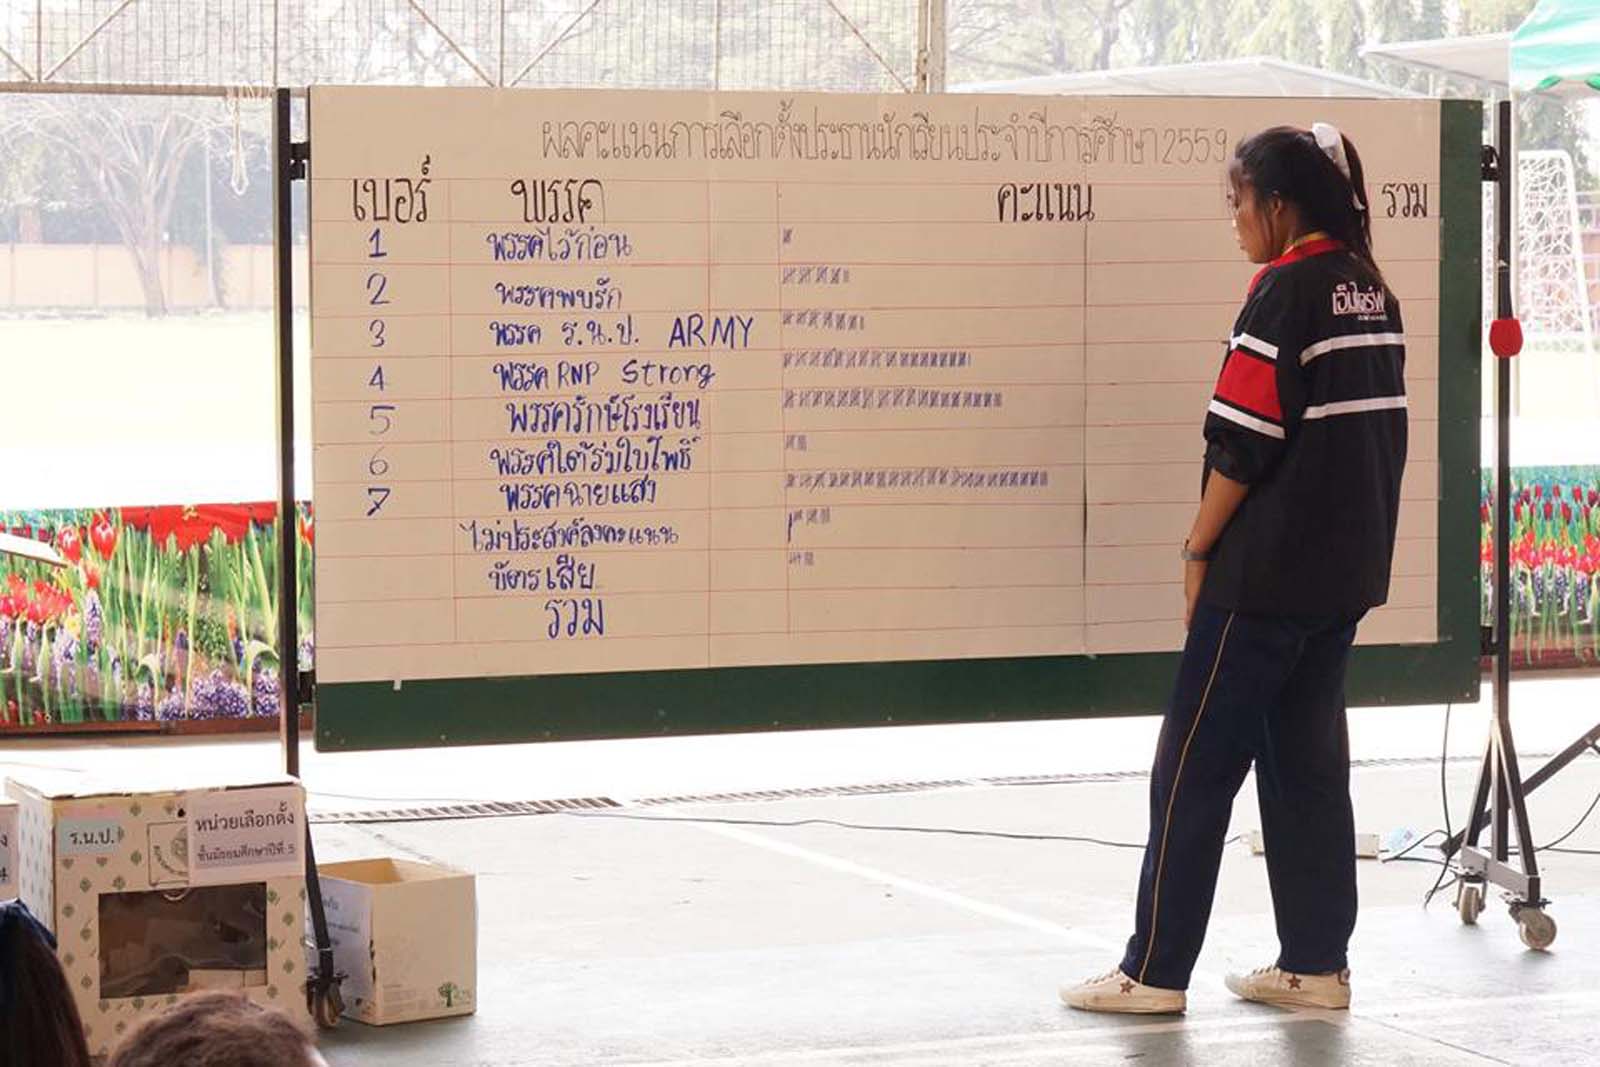 ผลคะแนนการเลือกตั้งประธานนักเรียนประจำปีการศึกษา 2559
เบอร์ พรรค คะแนน รวม
1 พรรคไว้ก่อน
2 พรรคพบรัก
3 พรรค ร.น.ป. ARMY
4 พรรค RNP Strong
5 พรรครักษ์โรงเรียน
6 พรรคใต้ร่มใบโพธิ์
7 พรรคฉายแสง
ไม่ประสงค์ลงคะแนน
บัตรเสีย
รวม
เอ็มไอร์ฟ
ร.น.ป.
หน่วยเลือกตั้ง
ชั้นมัธยมศึกษาปีที่ 5
4